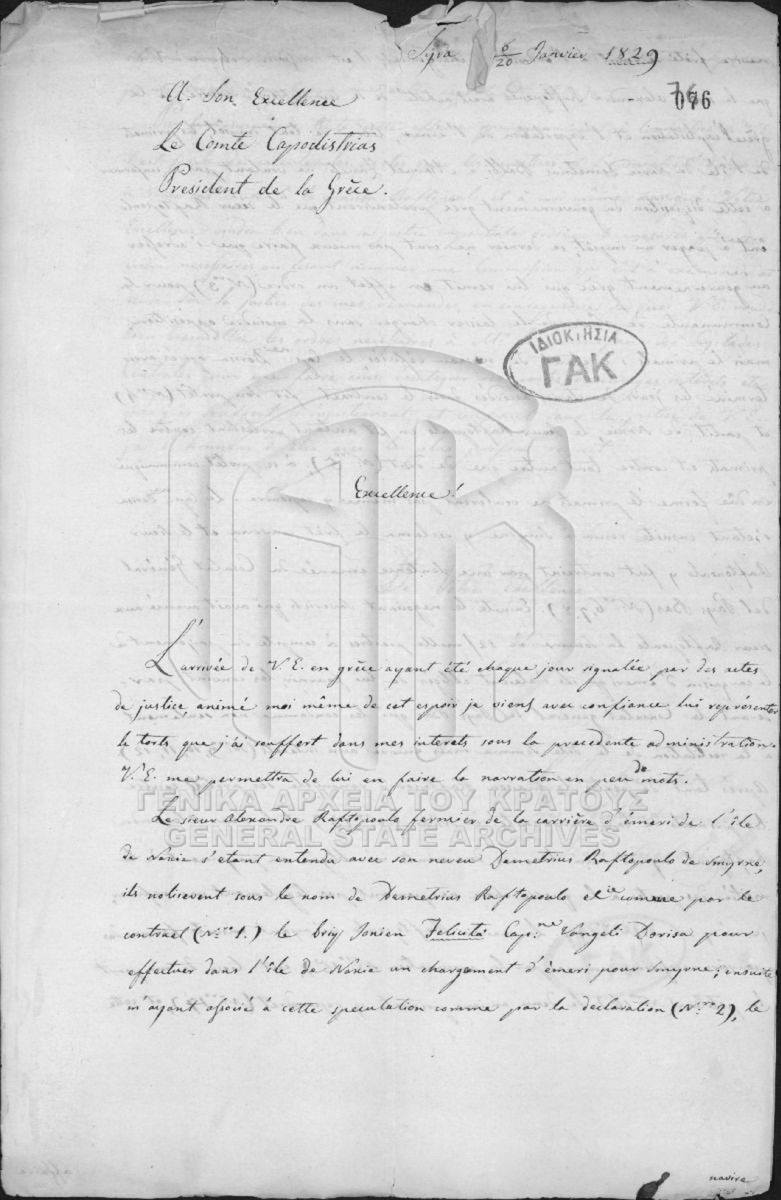 Syra 8/20 Janvier 1829
76
076
A. Son Excellence
Le Comte Capodistrias
President de la Grèce.
ΙΔΙΟΚΤΗΣΙΑ
ΓΑΚ
Excellence!
L'arrivée de V. E. en grèce ayant été chaque jour signalée par des actes
de justice, animé moi même de cet espoir je viens avec confiance lui représenter
le torts que j'ai souffert dans mes interets sous la precedente administration.
V. E. me permettra de lui en faire la narration en peu de mots.
ΓΕΝΙΚΑ ΑΡΧΕΙΑ ΤΟΥ ΚΡΑΤΟΥΣ
GENERAL STATE ARCHIVES
Le sieur Alexandre Raftopoulo fermier de la carrière d'émeri de l'île
de Naxie s'etant entendu avec son neveu Demetrius Raftopoulo de Smyrne,
ils nolisevent sous le nom de Demetrius Raftopoulo et Cie comme par le
contract (Nro 1.) le brig Jonien Felicità Capne Vangeli Dorisa pour
effectuer dans l'île de Naxie un chargement d'émeri pour Smyrne; ensuite
m'ayant associé à cette speculation comme par la declaration (Nro 2), le
navire